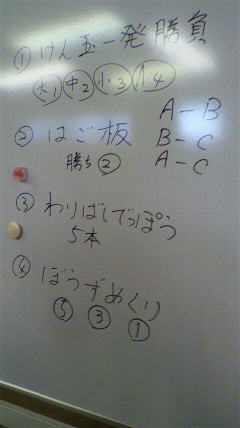 ① けん玉一発勝負
大1 中2 小3 ㇑4
A－B
② はご板 B－C
勝ち② A－C
③ わりばしでっぽう
5本
④ ぼうずめくり
⑤ ③ ①